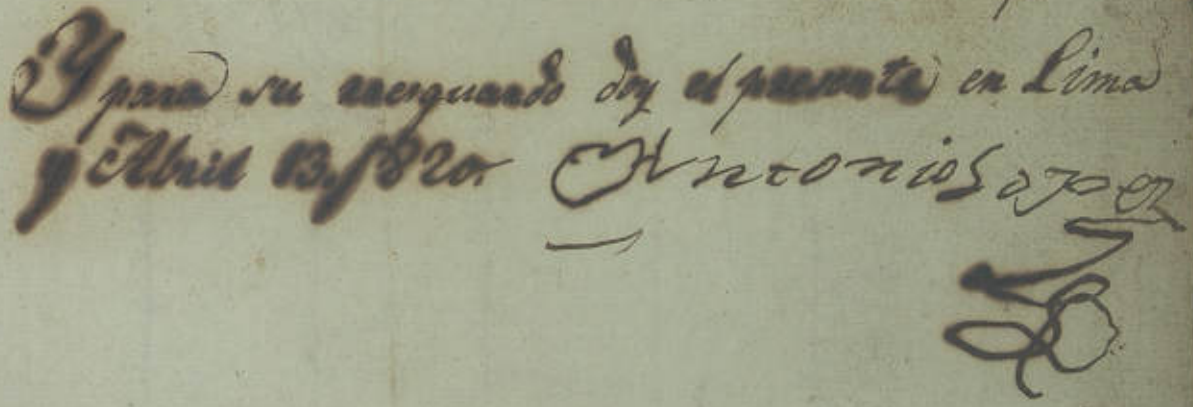 Y para su resguardo doy el presente en Lima
y Abril 13,, 1820. Antonio Lopez